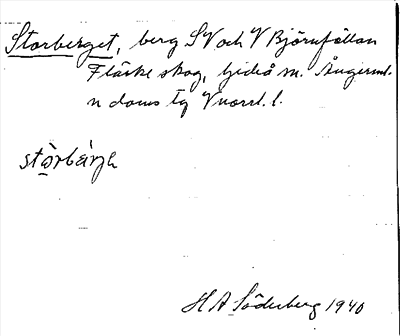 Storberget, berg SV och V Björnfällan
Flärke skog, Gideå sn. Ångerml.
n doms tg Vnorrl. l.
stòrbárjə
H A Söderberg 1940